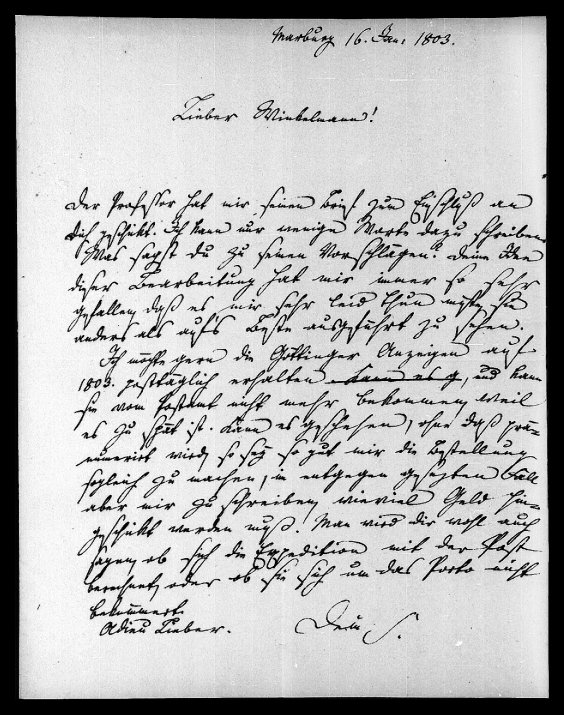 Marburg 16. Jan. 1803.
Lieber Winkelmann!
Der Professor hat mir seinen Brief zum Einschluß an
dich geschikt. Ich kann nur wenige Worte dazu schreiben.
Was sagst du zu seinen Vorschlägen? Deine Idee
dieser Bearbeitung hat mir immer so sehr
gefallen, daß es mir sehr leid thun müßte, sie
anders als auf's Beste ausgeführt zu sehen.
Ich möchte gern die Göttinger Anzeigen auf
1803. posttäglich erhalten, kann es g, und kann
sie vom Postamt nicht mehr bekommen, weil
es zu spät ist. Kann es geschehen, ohne daß prä-
numerirt wird, so sey so gut mir die Bestellung
sogleich zu machen, im entgegen gesezten Fall
aber mir zu schreiben, wieviel Geld hin-
geschikt werden muß. Man wird dir wohl auch
sagen, ob sich die Expedition mit der Post
berechnet, oder ob sie sich um das Porto nicht
bekümmert.
Adieu Lieber. Dein S.